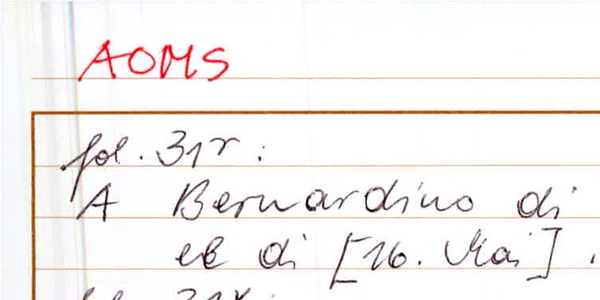 AOMS
fol. 31r:
A Bernardino di
eb di [16. Mai].